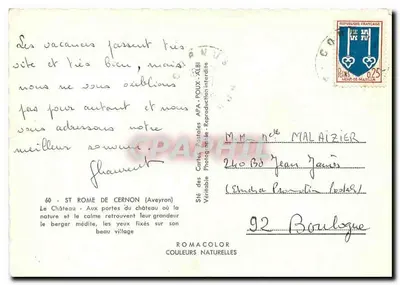 Les vacances passent très
vite et très bien, mais
nous ne vous oublions
pas pour autant et nous
vous adressons notre
meilleur souvenir.
60 - ST ROME DE CERNON (Aveyron)
Le Château - Aux portes du château où la
nature et le calme retrouvent leur grandeur
le berger médite, les yeux fixés sur son
beau village
Sté des Cartes Postales APA-POUX-ALBI
Véritable Photographie - Reproduction interdite
ROMACOLOR
COULEURS NATURELLES
REPUBLIQUE FRANCAISE
0,25
MONT-DE-MARSAN
M M - Mle MALAIZIER
240 Bd Jean Jaurès
92 Boulogne